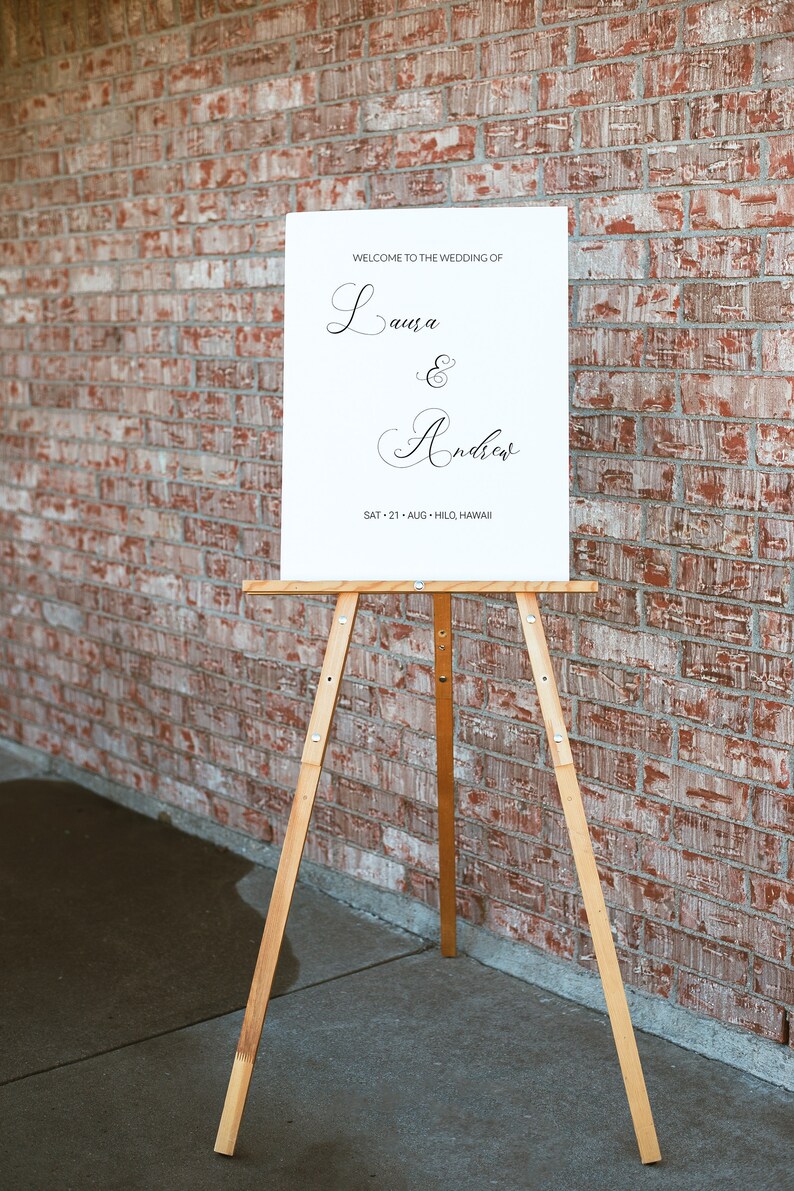 WELCOME TO THE WEDDING OF
Laura
&
Andrew
SAT • 21 • AUG • HILO, HAWAII